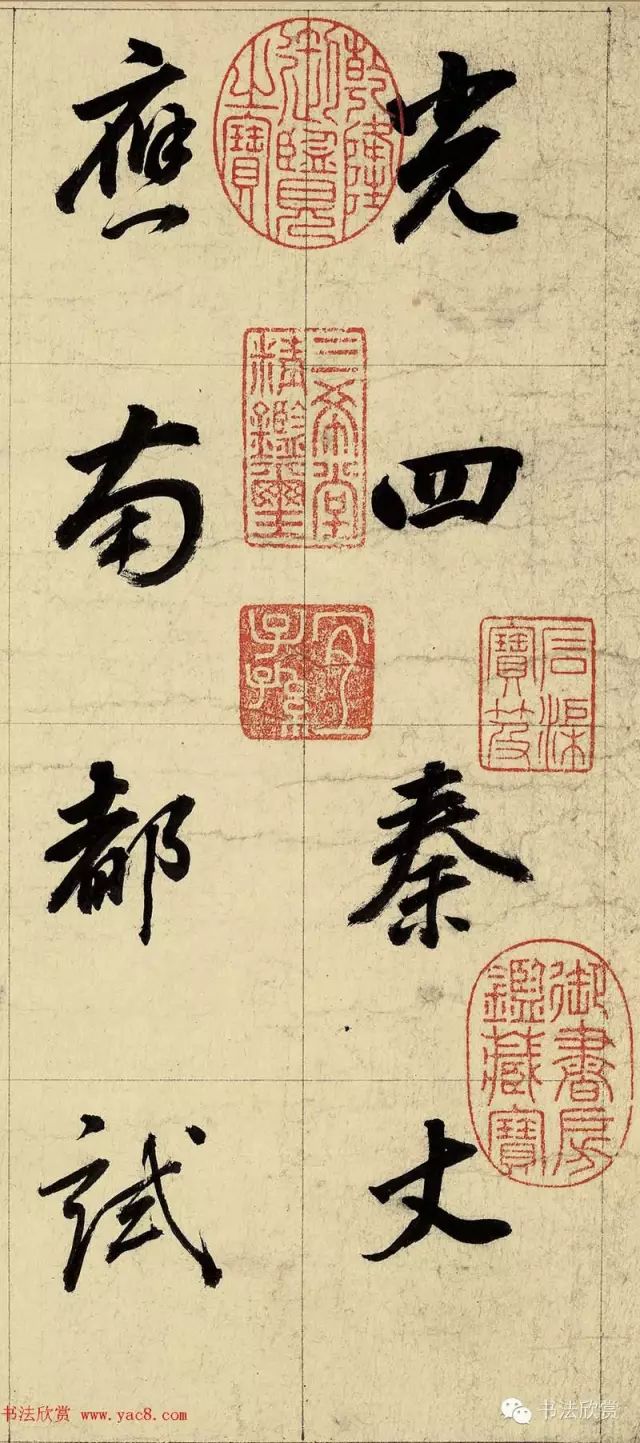 光四秦丈
應南都試
乾隆御覽之寶
三希堂精鑑璽
宜子孫
石渠寶笈
御書房鑑藏寶
书法欣赏 www.yac8.com
书法欣赏